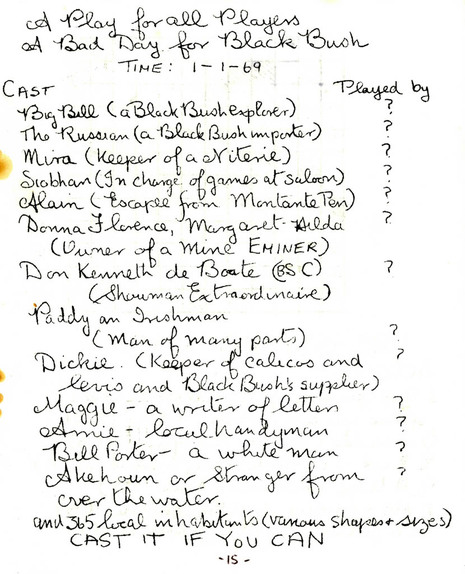 A Play for all Players
A Bad Day for Black Bush
TIME: 1-1-69
CAST Played by
Big Bill (a Black Bush explorer) ?
The Russian (a Black Bush importer) ?
Mira (Keeper of a Niterie) ?
Siobhan (In charge of games at saloon) ?
Alain (Escapee from Montante Pen) ?
Donna Florence, Margaret-Hilda ?
(Owner of a Mine EMINER)
Don Kenneth de Boate (BSC) ?
(Showman Extraordinaire)
Paddy an Irishman
(Man of many parts) ?
Dickie. (Keeper of calicos and ?
levis and Black Bush's supplier)
Maggie - a writer of letters ?
Arnie - local handyman ?
Bill Porter - a white man ?
Akehoun or Stranger from ?
over the water.
and 365 local inhabitants (various shapes & sizes)
CAST IT IF YOU CAN
-15-